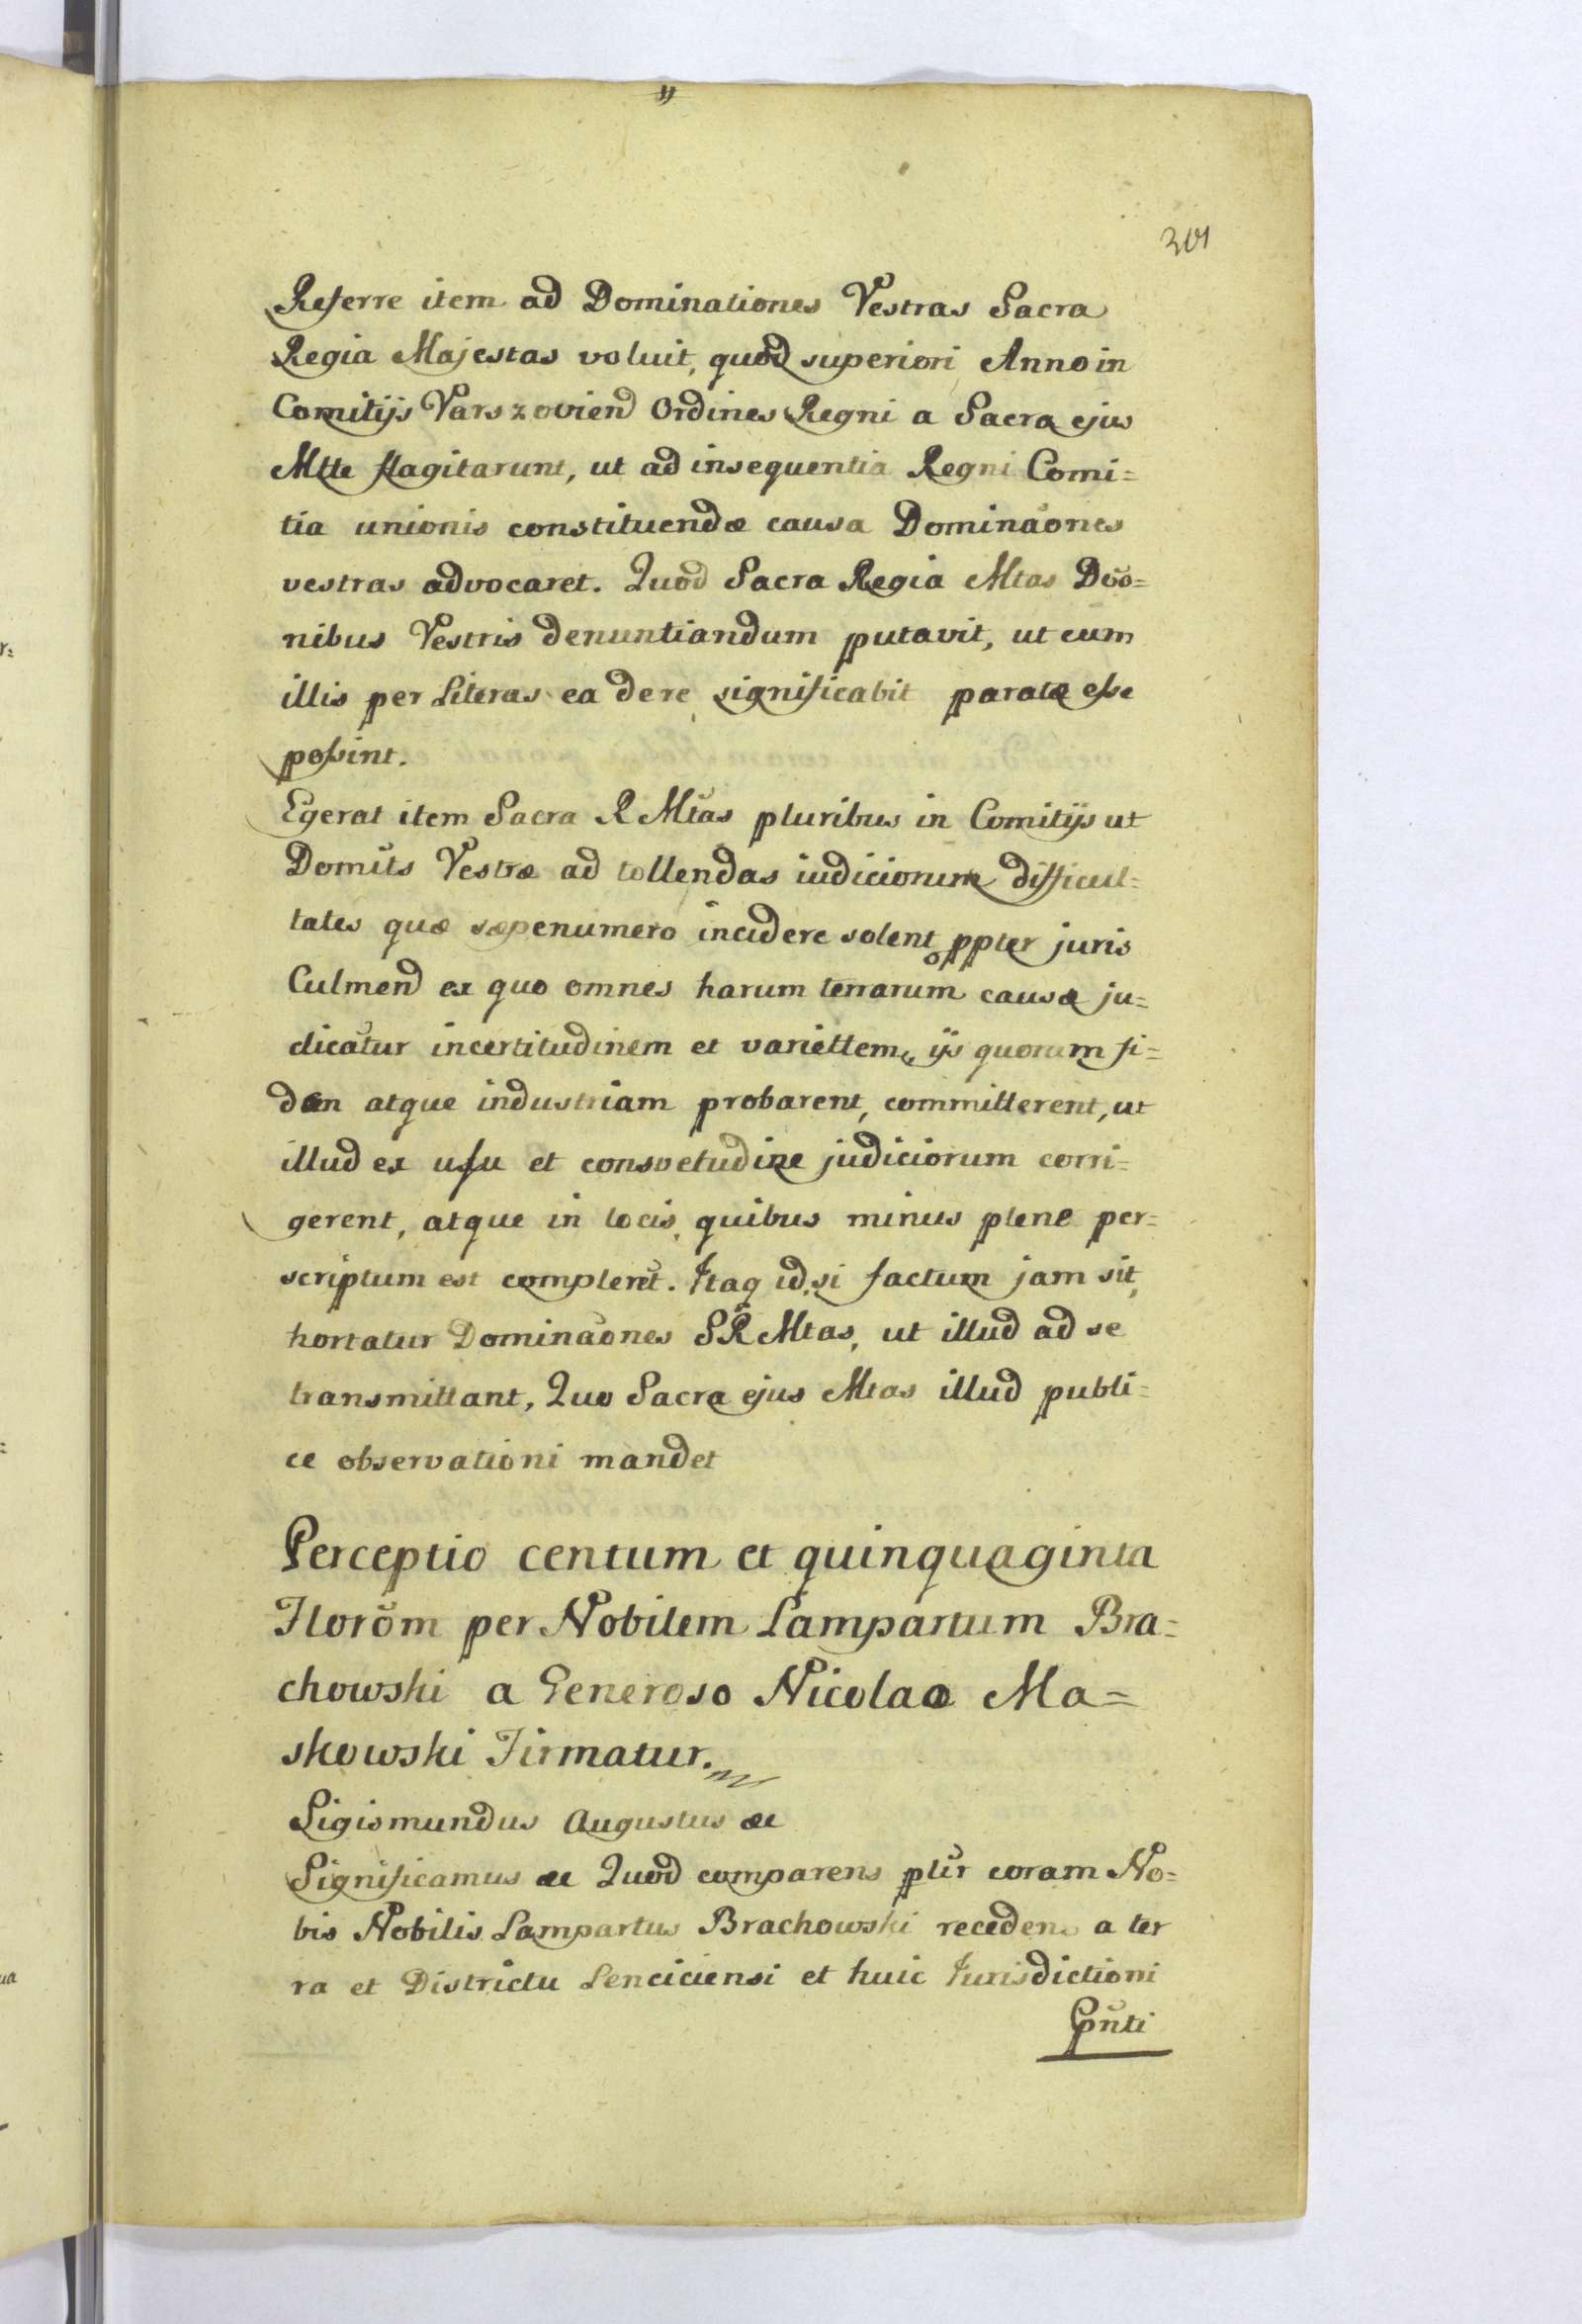 Referre item ad Dominationes Vestras Sacra
Regia Majestas voluit, quod superiori Anno in
Comitijs Varszoviend Ordines Regni a Sacra ejus
Mtte flagitarunt, ut ad insequentia Regni Comi=
tia unionis constituendæ causa Dominaões
vestras advocaret. Quod Sacra Regia Mtas Doo=
nibus Vestris denuntiandum putavit, ut cum
illis per Literas ea de re significabit paratæ eſse
poſsint.
Egerat item Sacra R Mtas pluribus in Comitijs ut
Domũs Vestræ ad tollendas iudiciorum difficul=
tates quæ sæpenumero incidere solent ppter juris
Culmend ex quo omnes harum terrarum causæ ju=
dicatur incertitudinem et variettem, ijs quorum fi=
dem atque industriam probarent, committerent, ut
illud ex uſu et consvetudine judiciorum corri=
gerent, atque in locis, quibus minus plene per=
scriptum est comple​rẽt. Itaq id, si factum jam sit,
hortatur Dominaões SR Mtas, ut illud ad se
transmittant, Quo Sacra ejus Mtas illud publi=
ce observationi mandet
Perceptio centum et quinquaginta
Florõm per Nobilem Lampartum Bra=
chowski a Generoso Nicolao Ma=
skowski Firmatur.
Sigismundus Augustus &c
Significamus &c Quod comparens plir coram No=
bis Nobilis Lampartus Brachowski recedens a ter
ra et Districtu Lenciciensi et huic Jurisdictioni
Pñti